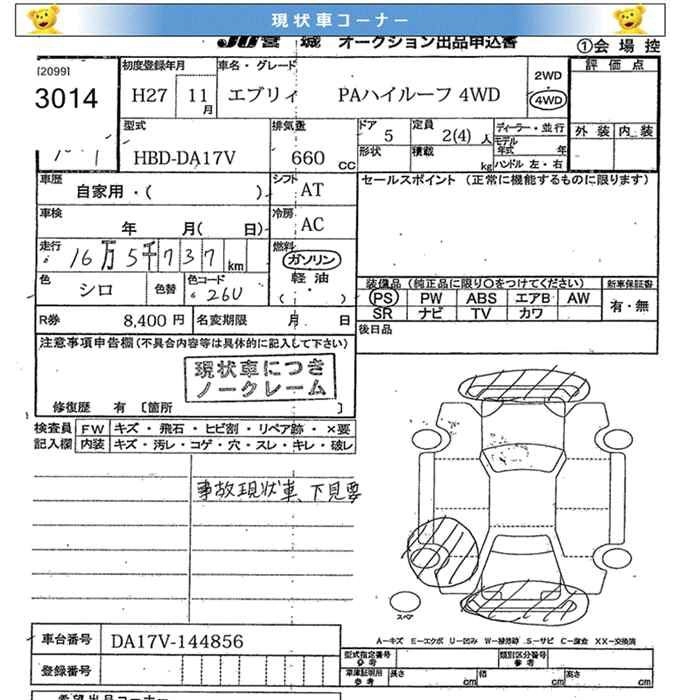 現状車コーナー
JU宮城 オークション出品申込書
①会場控
[2099]
3014
初度登録年月
H27 11月
車名・グレード
エブリィ PAハイルーフ 4WD
2WD
4WD
評価点
外装 内装
型式
HBD-DA17V
排気量
660 CC
ドア 5
定員 2(4) 人
形状
積載 kg
ディーラー・並行
モデル年式 年
ハンドル 左・右
車歴
自家用・( )
シフト AT
セールスポイント (正常に機能するものに限ります)
車検
年 月( 日)
冷房 AC
走行
16万5千737 km
燃料
ガソリン
軽油
( ・ )
色
シロ
色替
色コード
26U
装備品(純正品に限り○をつけてください)
新車保証書
PS PW ABS エアB AW
SR ナビ TV カワ
有・無
R券 8,400 円
名変期限 月 日
後日品
注意事項申告欄(不具合内容等は具体的に記入して下さい)
現状車につき
ノークレーム
修復歴 有 [箇所 ]
検査員記入欄
FW キズ・飛石・ヒビ割・リペア跡・×要
内装 キズ・汚レ・コゲ・穴・スレ・キレ・破レ
事故現状車、下見要
スペア
A-キズ E-エクボ U-凹み W-補修跡 S-サビ C-腐食 XX-交換済
車台番号 DA17V-144856
登録番号
型式指定番号
参考
類別区分番号
参考
車庫証明用
参考
長さ cm
幅 cm
高さ cm
希望出品コーナー